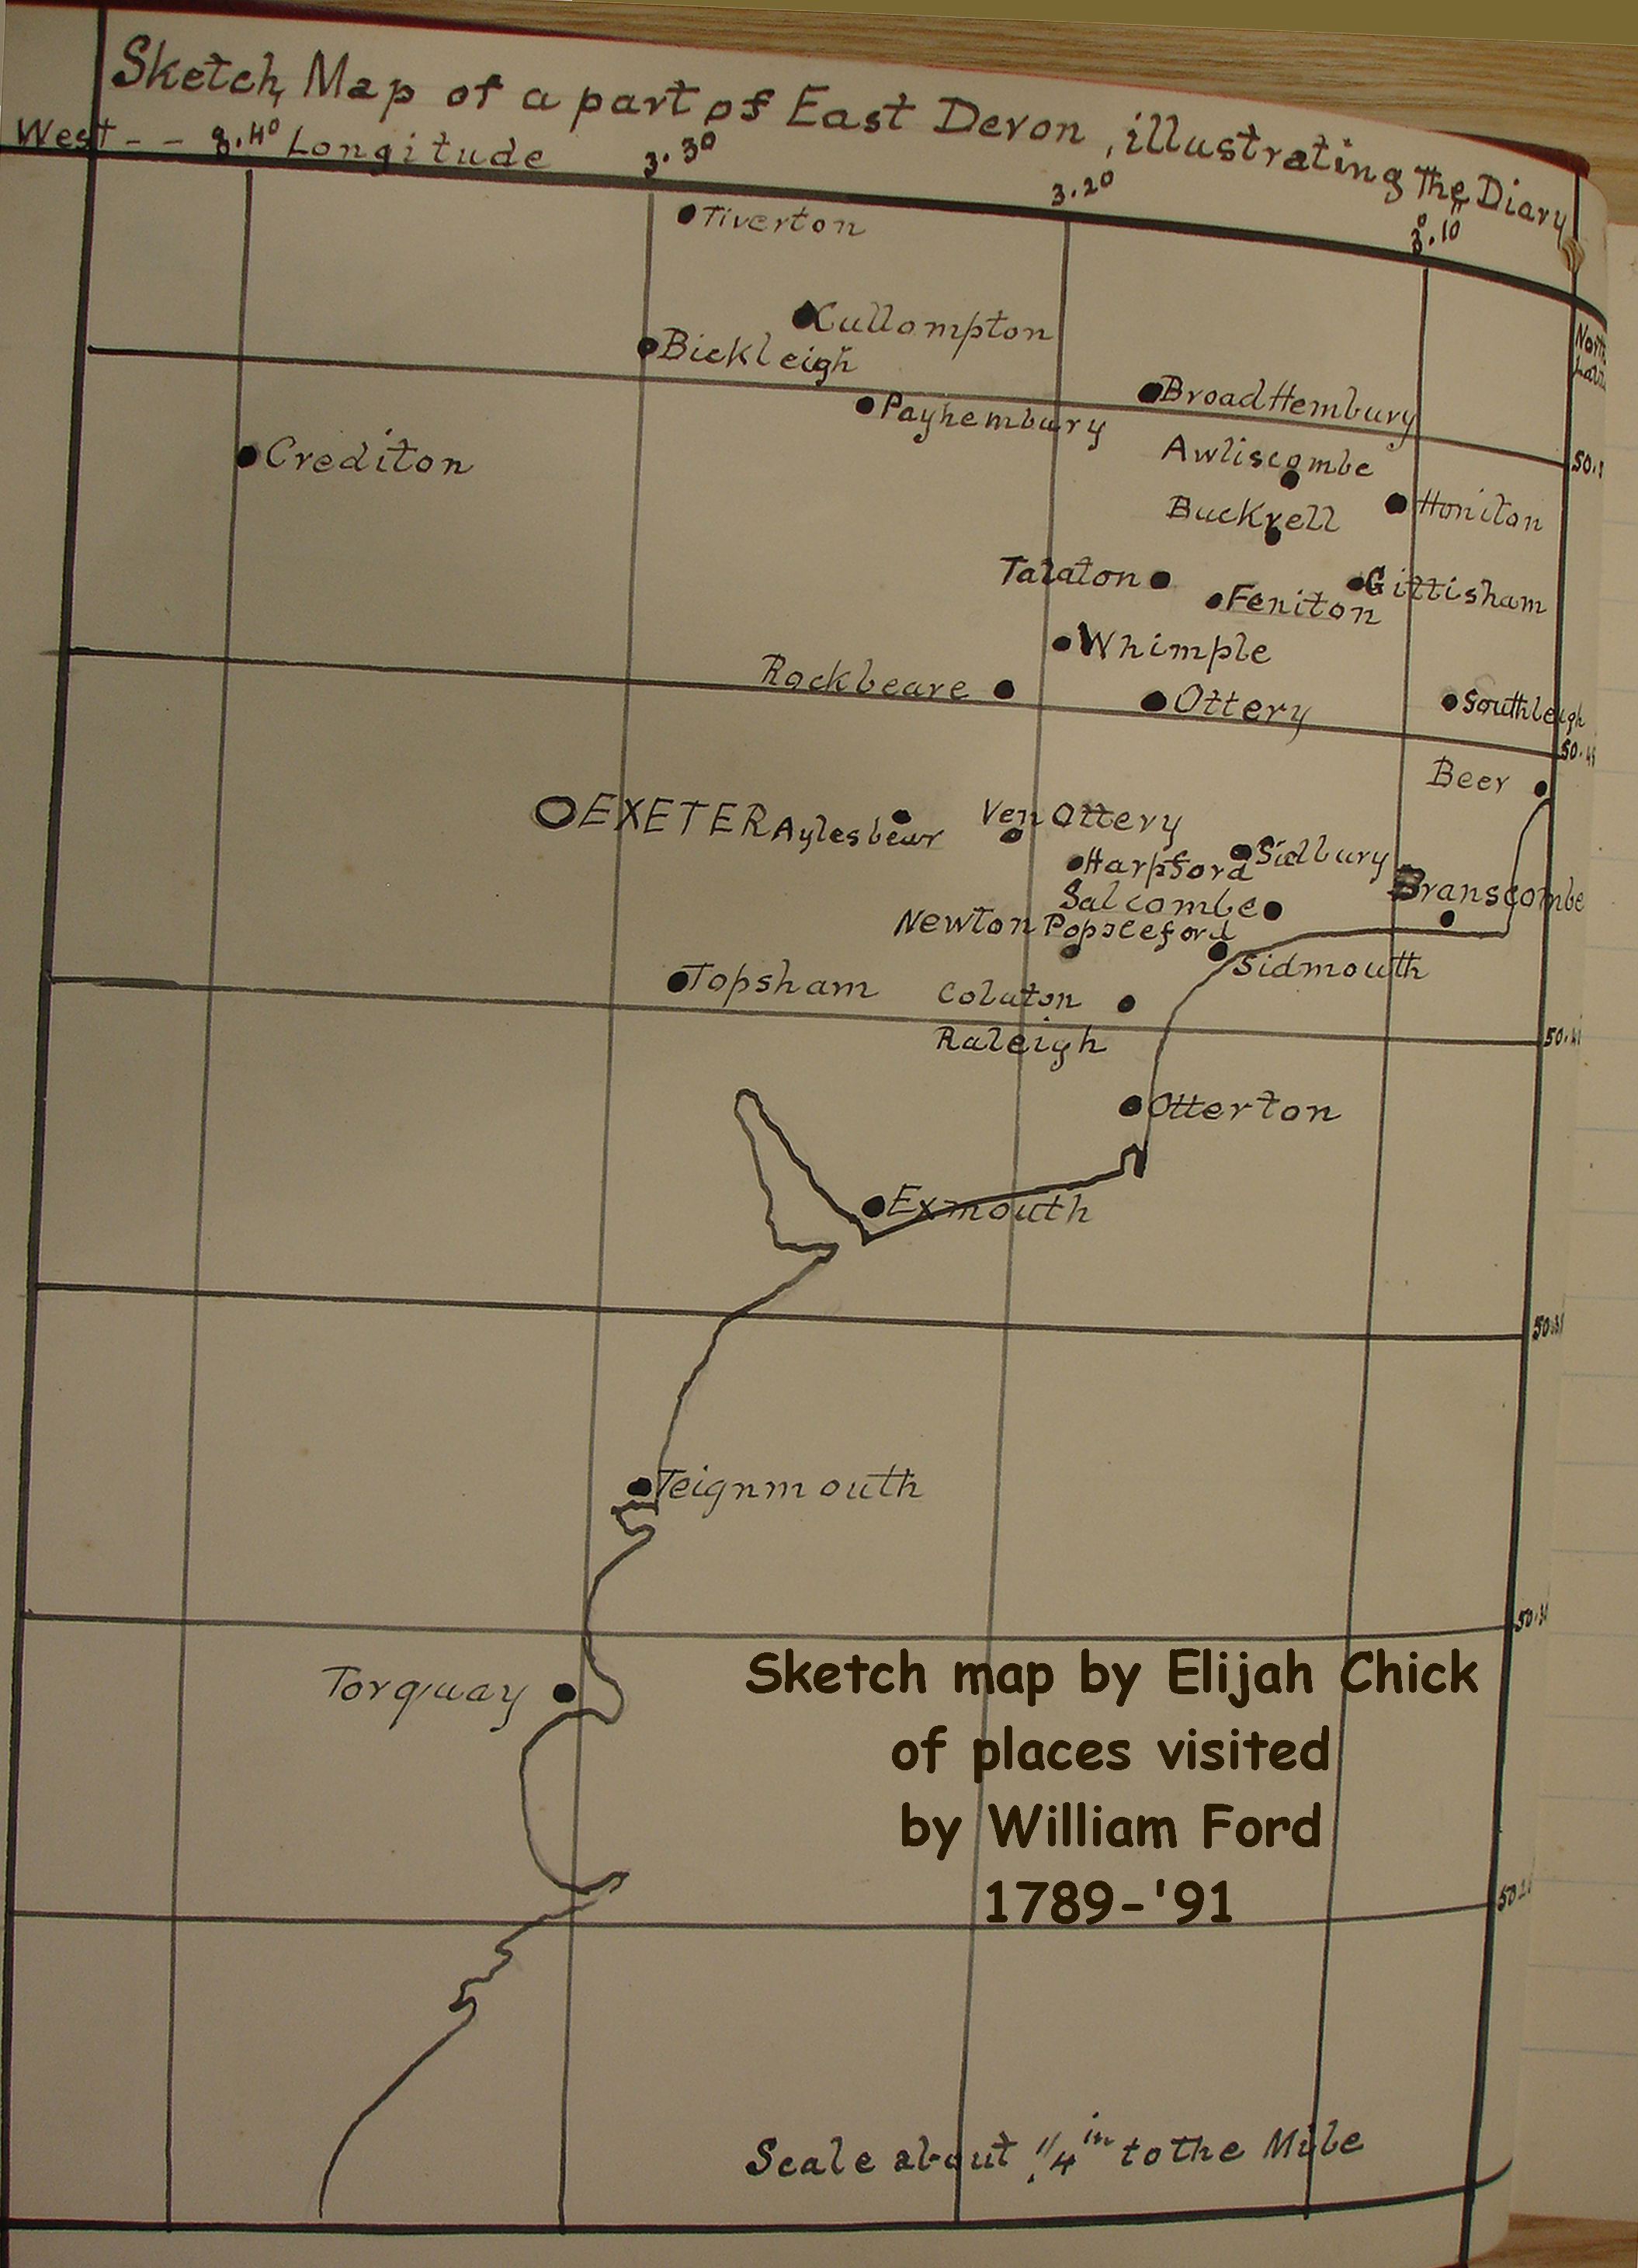 Sketch Map of a part of East Devon, illustrating the Diary
West - - 3.40 Longitude 3.30 3.20 3.10
Tiverton
Cullompton
Bickleigh
BroadHembury
Payhembury
Crediton
Awliscombe
Honiton
Buckrell
Talaton
Gittisham
Feniton
Whimple
Rockbeare
Ottery
Southleigh
Beer
EXETER
Aylesbear
Ven Ottery
Sidbury
Harpford
Branscombe
Salcombe
Newton Popleford
Sidmouth
Topsham
Colaton
Raleigh
Otterton
Exmouth
Teignmouth
Torquay
Sketch map by Elijah Chick
of places visited
by William Ford
1789-'91
Scale about 1/4 in to the Mile